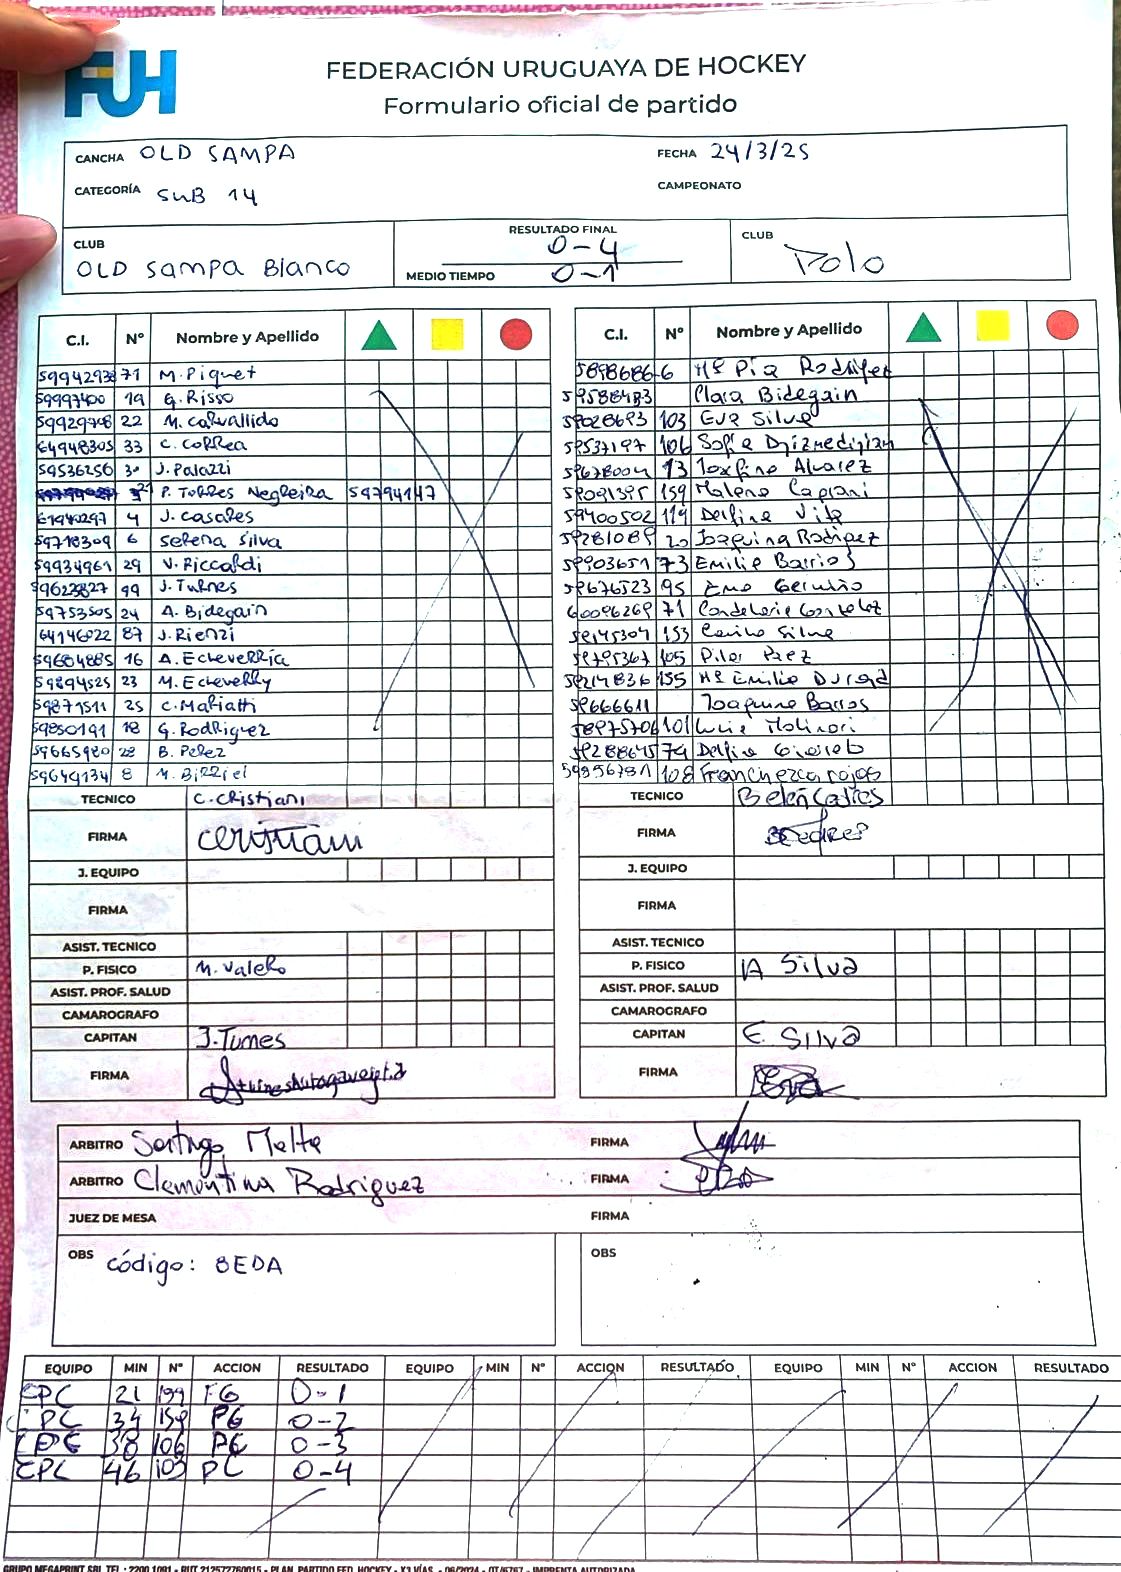 FUH
FEDERACIÓN URUGUAYA DE HOCKEY
Formulario oficial de partido
CANCHA OLD SAMPA FECHA 24/3/25
CATEGORÍA SUB 14 CAMPEONATO
CLUB OLD SAMPA BLANCO
RESULTADO FINAL 0-4
MEDIO TIEMPO 0-1
CLUB Polo
C.I. Nº Nombre y Apellido
59942938 71 M. Piquet
59997400 19 G. Risso
59929708 22 M. Carvallido
64948305 33 C. Correa
59536256 30 J. Palazzi
P. Torres Negreira 59794147
61940297 4 J. Casares
59718309 6 Serena Silva
59934961 29 V. Riccardi
59623827 99 J. Turnes
59753505 24 A. Bidegain
64146022 87 J. Rienzi
59604885 16 A. Echeverría
59894525 23 M. Echeverry
59871511 25 C. Mariatti
59850191 18 G. Rodriguez
59665980 28 B. Perez
59649134 8 M. Birriel
TECNICO C. Cristiani
FIRMA Cristiani
J. EQUIPO
FIRMA
ASIST. TECNICO
P. FISICO M. Valero
ASIST. PROF. SALUD
CAMAROGRAFO
CAPITAN J. Turnes
FIRMA
C.I. Nº Nombre y Apellido
5898686-6 Mª Pía Rodriguez
59588483 Clara Bidegain
59028693 103 Eva Silva
59537197 106 Sofia
59678004 13 Josefina Alvarez
59091395 159 Malena Caprani
59400502 119 Delfina Vila
59281089 20 Joaquina Rodriguez
59903651 73 Emilia Barrios
59676523 95 Ema
60096269 71 Candelaria Gonzalez
59145304 153 Carina Silva
59795367 105 Pilar Paez
59214836 155 Mª Emilia Durand
59666611 Joaquina Barros
58975706 101 Lucia Molinari
59288645 74 Delfina
59956781 108 Franchezca rojas
TECNICO Belén Castres
FIRMA
J. EQUIPO
FIRMA
ASIST. TECNICO
P. FISICO A Silva
ASIST. PROF. SALUD
CAMAROGRAFO
CAPITAN E. Silva
FIRMA
ARBITRO Santiago FIRMA
ARBITRO Clementina Rodriguez FIRMA
JUEZ DE MESA FIRMA
OBS código: 8EDA OBS
EQUIPO MIN Nº ACCION RESULTADO EQUIPO MIN Nº ACCION RESULTADO EQUIPO MIN Nº ACCION RESULTADO
CPC 21 199 FG 0-1
CPC 34 159 FG 0-2
CPC 38 106 PC 0-3
CPC 46 103 PC 0-4
GRUPO MEGAPRINT SRL TEL.: 2200 1091 - RUT 212572760015 - PLAN. PARTIDO FED. HOCKEY - X3 VÍAS - 06/2024 - OT/6767 - IMPRENTA AUTORIZADA